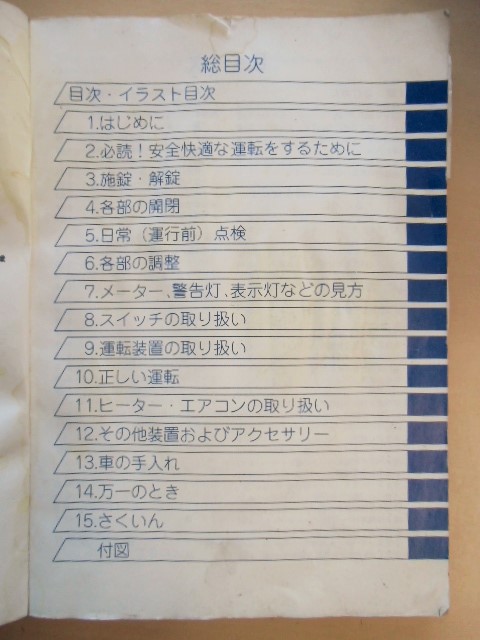 総目次
目次・イラスト目次
1.はじめに
2.必読！安全快適な運転をするために
3.施錠・解錠
4.各部の開閉
5.日常（運行前）点検
6.各部の調整
7.メーター、警告灯、表示灯などの見方
8.スイッチの取り扱い
9.運転装置の取り扱い
10.正しい運転
11.ヒーター・エアコンの取り扱い
12.その他装置およびアクセサリー
13.車の手入れ
14.万一のとき
15.さくいん
付図